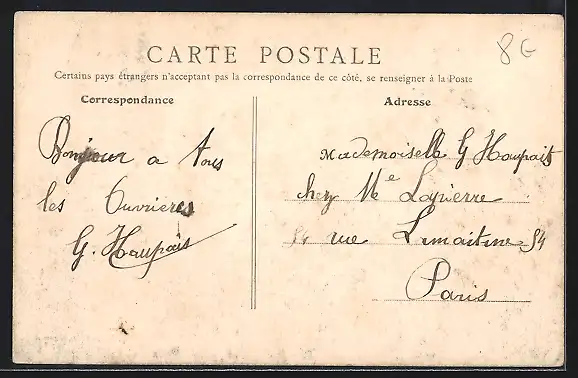 CARTE POSTALE
8 G
Certains pays étrangers n'acceptant pas la correspondance de ce côté, se renseigner à la Poste
Correspondance
Bonjour a tous
les Ouvrieres
G. Haupais
Adresse
Mademoiselle G Haupait
chez Me Lapierre
54 rue Lamartine 54
Paris